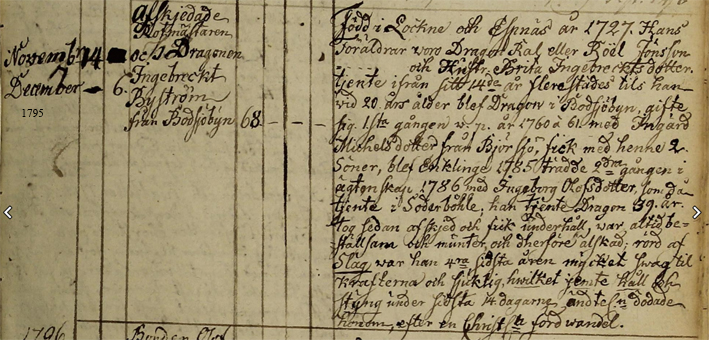 afskjedade
Rotmästaren
Novemb: 14 och Dragonen
7 Ingebreckt
December 6. Byström
1795
från Bodsjöbyn 68
Född i Lockne och Espnäs år 1727. Hans
Föräldrar voro Dragon Kal eller Röel Jönsson
och Hustr. Brita Ingebrecktsdotter.
tjente ifrån sitt 14de år flerestädes tils han
vid 20 års ålder blef Dragon i Bodsjöbyn, gifte
sig 1sta gången år 1760 à 61. med Ingiärd
Michelsdotter från Björsjö, fick med henne 2
Söner, blef Enklinge 1785 trädde 2dra gången i
ägtenskap 1786 med Ingeborg Olofsdotter, som då
tjente i Söderböhle, har tjente Dragon 39. år.
tog sedan afskjed och fick underhåll, war altid be-
ställsam och munter, och dherföre älskad; rörd af
Slag, war han 4ra sidsta åren mycket swag til
krafterna och sjuklig, hwilket jemte Håll och
styng under sidsta 14 dagarne ändte dödade
honom, efter en Christ förd wandel.
1796 Bonden Olof